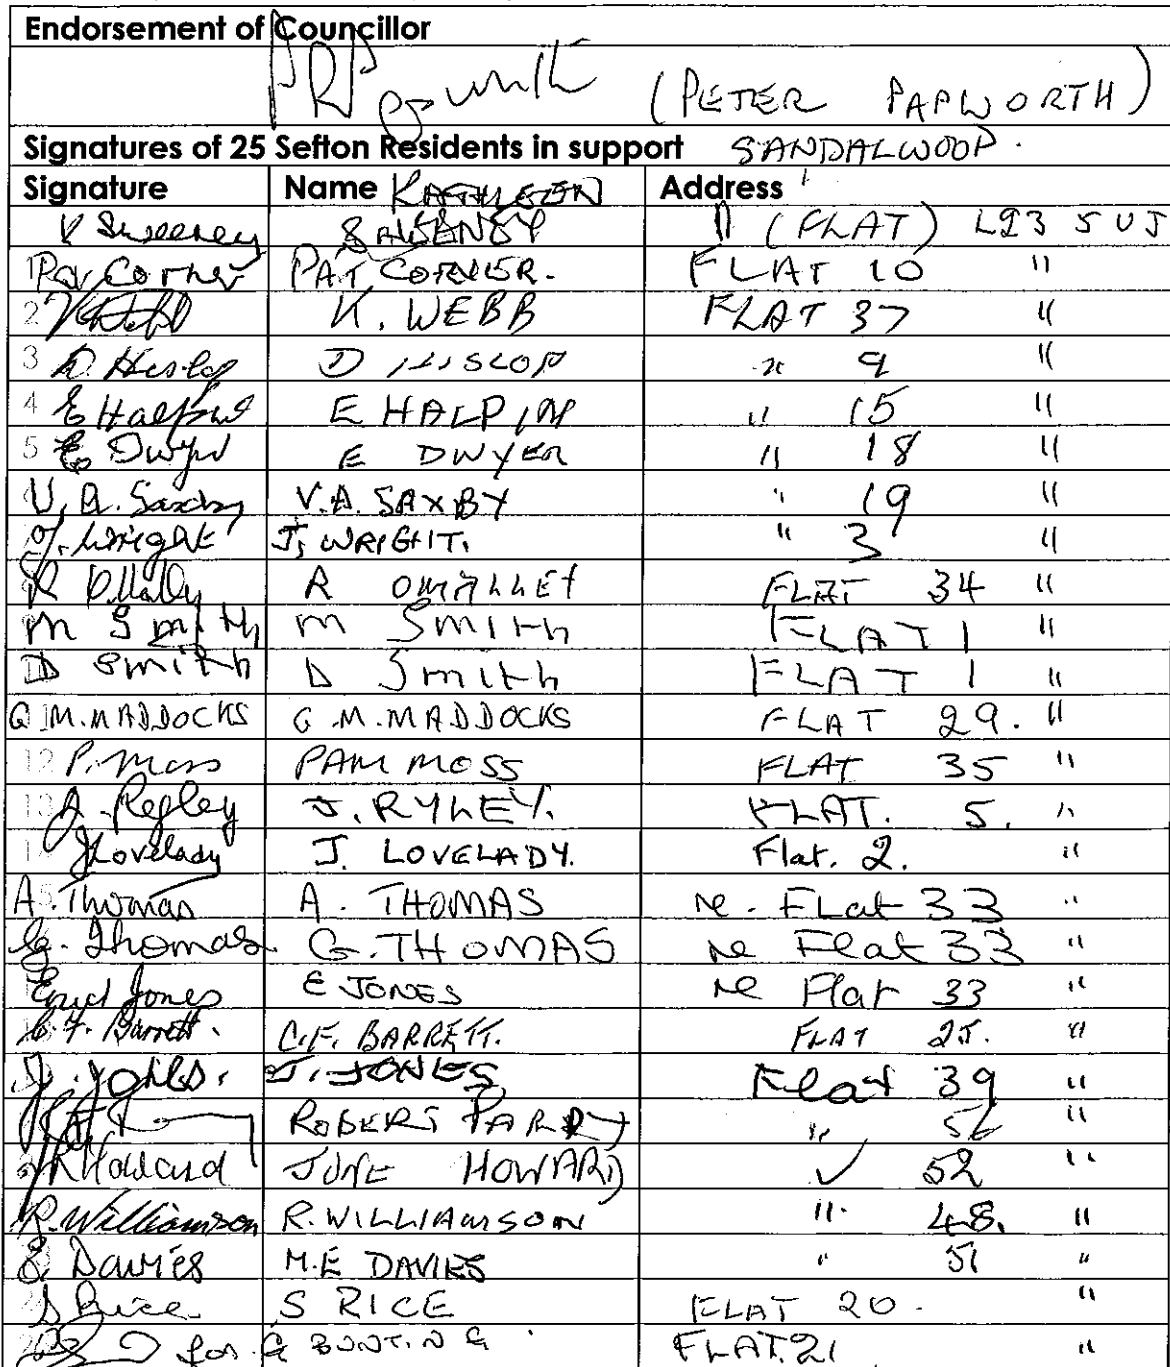 Endorsement of Councillor
(PETER PAPWORTH)
Signatures of 25 Sefton Residents in support SANDALWOOD.
Signature Name KATHLEEN Address
K Sweeney SWEENEY 11 (FLAT) L23 5UJ
1 Pat Corner PAT CORNER. FLAT 10 "
2 K. WEBB FLAT 37 "
3 D. Heslop D HESLOP " 9 "
4 E Halpin E HALPIN " 15 "
5 E Dwyer E DWYER " 18 "
V. A. Saxby V.A. SAXBY " 19 "
J. Wright J. WRIGHT. " 3 "
R O'Malley R OMALLEY FLAT 34 "
M Smith M Smith FLAT 1 "
D Smith D Smith FLAT 1 "
G M. MADDOCKS G M. MADDOCKS FLAT 29. "
12 P. Moss PAM MOSS FLAT 35 "
13 J. RYLEY. FLAT. 5. "
1 J Lovelady J. LOVELADY. Flat. 2. "
A. Thomas A. THOMAS re. FLat 33 "
G. Thomas. G. THOMAS re Flat 33 "
Enid Jones E JONES re Flat 33 "
C. F. Barrett. C.F. BARRETT. FLAT 25. "
J. Jones. J. JONES Flat 39 "
ROBERT PARRY " 56 "
Howard JUNE HOWARD 52 "
R. Williamson R. WILLIAMSON ". 48. "
E. Davies M.E DAVIES " 51 "
S Rice S RICE FLAT 20. "
for G BUNTING. FLAT.21 "